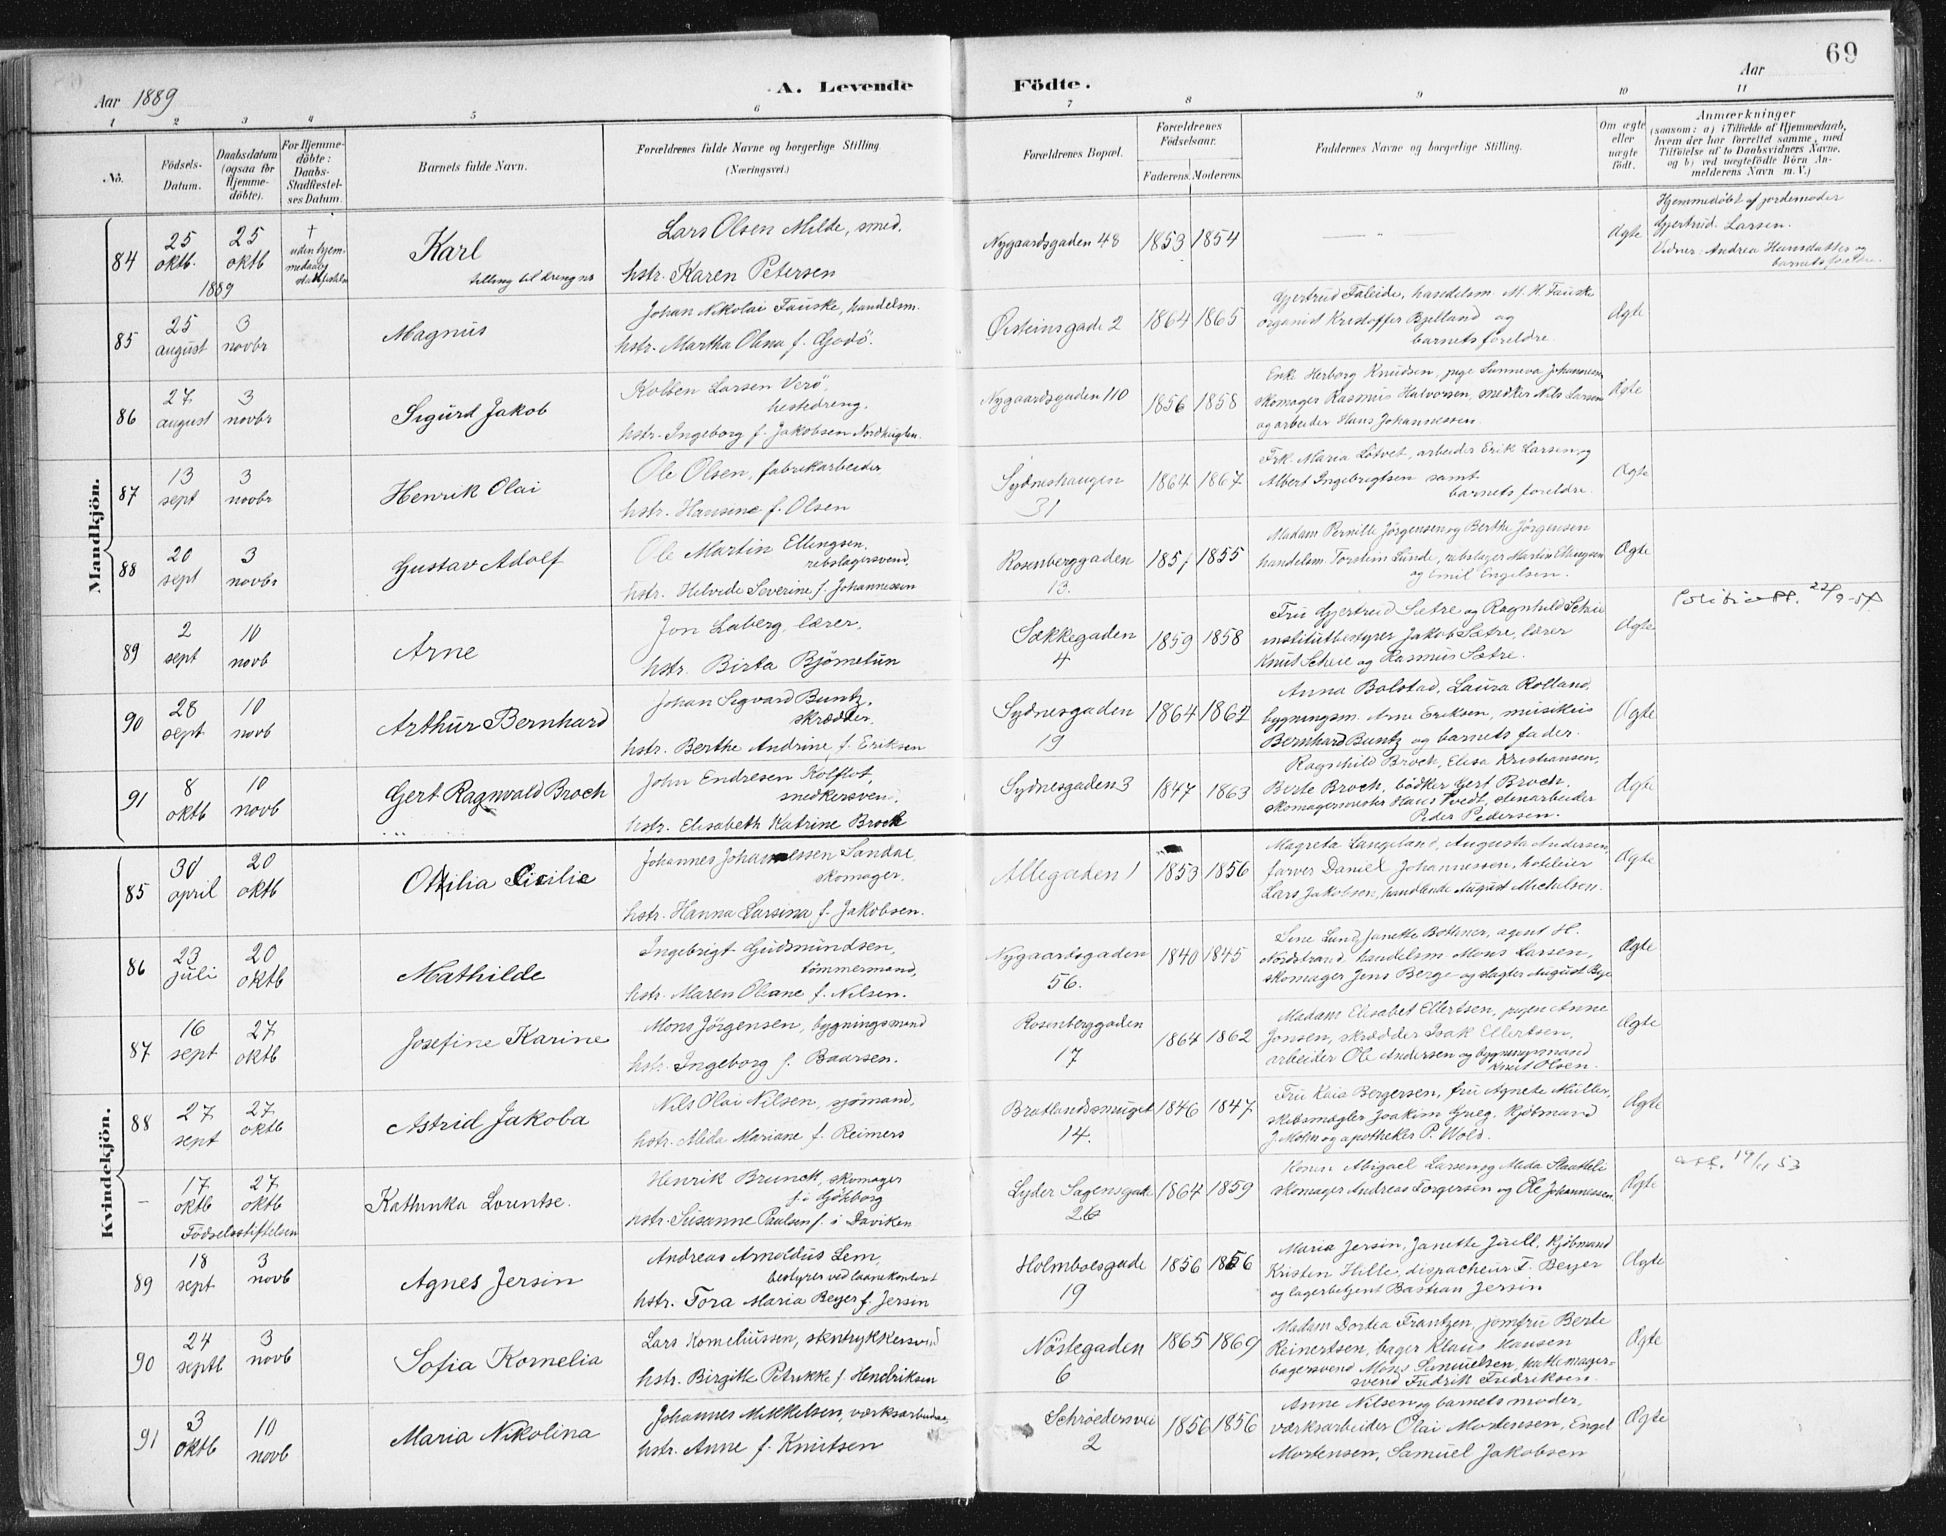 69
Aar 1889
A. Levende Födte.
Aar
1 2 3 4 5 6 7 8 9 10 11
No.
Födsels-Datum.
Daabsdatum (ogsaa for Hjemmedöbte).
For Hjemmedöbte: Daabs-Stadfæstelses Datum.
Barnets fulde Navn.
Forældrenes fulde Navne og borgerlige Stilling (Næringsvei.)
Forældrenes Bopæl.
Forældrenes Födselsaar.
Faderens. Moderens.
Faddernes Navne og borgerlige Stilling.
Om ægte eller uægte födt.
Anmærkninger
(saasom: a) i Tilfælde af Hjemmedaab, hvem der har forrettet samme, med Tilföielse af to Daabsvidners Navne, og b) ved uegtefödte Börn Anmelderens Navn m. V.)
Mandkjön.
84
25 oktb. 1889
25 oktb
† uden hjemmedaabs stadfestelse
Karl
Lars Olsen Milde, smed.
hstr. Karen Petersen
Nygaardsgaden 48
1853 1854
Ægte
Hjemmedøbt af jordemoder
Gjertrud Larsen.
Vidner: Andrea Hansdatter og
barnets fædre.
85
25 august
3 novbr
Magnus
Johan Nikolai Fauske, handelsm.
hstr. Martha Olena f. Godö.
Øisteinsgade 2
1864 1865
Gjertrud Faleide, handelsm. M. H. Fauske
organist Kristoffer Bjelland og
barnets foreldre.
Ægte
86
27 august
3 novbr
Sigurd Jakob
Kolben Larsen Verö,
hestedreng.
hstr. Ingeborg f. Jakobsen Nordhuglen.
Nygaardsgaden 110
1856 1858
Enke Herborg Knudsen, pige Sunneva Johannesen
skomager Rasmus Halvorsen, snedker Nils Larsen
og arbeider Hans Johannessen.
Ægte
87
13 sept
3 novbr
Henrik Olai
Ole Olsen, fabrikarbeider
hstr. Hansine f. Olsen
Sydneshaugen
31
1864 1867
Frk. Maria Løtvet, arbeider Erik Larsen og
Albert Ingebrigtsen samt
barnets foreldre.
Ægte
88
20 sept
3 novbr
Gustav Adolf
Ole Martin Ellingsen,
rebslagersvend,
hstr. Helvede Severine f. Johannessen
Rosenberggaden
13.
1857 1855
Madam Pernille Jörgensen og Berthe Jörgensen
handelsm. Torstein Lunde, rebslager Martin Ellingsen
og Emil Engelsen.
Ægte
89
2 sept
10 novb
Arne
Jon Laberg, lærer,
hstr. Birta Bjömetun
Sækkegaden
4
1859 1858
Fru Gjertrud Sætre og Ragnhild Scheie
institutbestyrer Jakob Sætre, lærer
Knut Scheie og Rasmus Sætre.
Ægte
90
28 sept
10 novb
Arthur Bernhard
Johan Sigvard Buntz,
skrædder.
hstr. Berthe Andrine f. Eriksen
Sydnesgaden
19
1864 1862
Anna Bolstad, Laura Rolland,
bygningsm. Arne Eriksen, musikeis
Bernhard Buntz og barnets fader.
Ægte
91
8 oktb
10 novb
Gert Ragnvald Broch
John Endresen Kolflot,
snedkersven,
hstr. Elisabeth Katrine Broch
Sydnesgaden 3
1847 1863
Ragnhild Broch, Elisa Kristiansen,
Berte Broch, bödker Gert Broch,
skomagermester Hans Tvedt, stenarbeider
Peder Pedersen.
Ægte
Kvindekjön.
85
30 april
20 oktb
Otilia Cicilie
Johannes Johannessen Sandal,
skomager,
hstr. Hanna Larsina f. Jakobsen.
Allegaden 1
1853 1856
Magreta Langeland, Augusta Andersen,
farver Daniel Johannessen, hoteleier
Lars Jakobsen, handlende August Michelsen.
Ægte
86
23 juli
20 oktb
Mathilde
Ingebrigt Gudmundsen,
tömmermand,
hstr. Maren Oliane f. Nilsen.
Nygaardsgaden
56.
1840 1845
Sine Lund, Janette Bottner, agent H.
Nordstrand, handelsm Mons Larsen,
skomager Jens Berge og slagter August Bye
Ægte
87
16 sept
27 oktb
Josefine Karine
Mons Jörgensen, bygningsmand
hstr. Ingeborg f. Baarsen.
Rosenberggaden
17
1864 1862
Madam Elisabet Ellertsen, pigen Anne
Jonsen, skrædder Isak Ellertsen,
arbeider Ole Andersen og bygningsmand
Knut Olsen.
Ægte
88
27 sept
27 oktb
Astrid Jakoba
Nils Olai Nilsen, sjömand,
hstr. Alida Mariane f. Reimers
Bratlandssmuget
14.
1846 1847
Fru Kaia Bergersen, fru Agnete Müller,
skibsmægler Joakim Grieg, kjöbmand
J. Mohn og apotheker P. Wold.
Ægte
–
17 oktb
27 oktb
Födselsstiftelsen
Kathinka Lorentse.
Henrik Brunch, skomager
f. i Gjøborg
hstr. Susanne Paulsen f. i Daviken
Lyder Sagensgade
26
1864 1859
Konen Abigael Larsen og Alida Staatteli
skomager Andreas Torgersen og Ole Johannessen
Ægte
89
18 sept
3 novb
Agnes Jersin
Andreas Arnoldus Lem,
bestyrer ved laanekontoret
hstr. Tora Maria Beyer f. Jersin
Holmboesgade
19
1856 1856
Maria Jersin, Janette Juell, kjöbmand
Kristen Hille, dispacheur F. Beyer
og lagerbetjent Bastian Jersin
Ægte
90
24 septb
3 novb
Sofia Kornelia
Lars Korneliussen, stentrykkersvend
hstr. Birgitte Petrikke f. Hendriksen
Nöstegaden
6
1865 1869
Madam Dortea Frantzen, jomfru Berte
Reinertsen, bager Klaus Hansen
bagersvend Mons Samuelsen, hattemager-
svend Fredrik Fredriksen.
Ægte
91
3 oktb
10 novb
Maria Nikolina
Johannes Mikkelsen, værksarbeider,
hstr. Anne f. Knutsen
Schröedersvei
2
1856 1856
Anne Nilsen og barnets moder,
værksarbeider Olai Mortensen, Engel
Mortensen, Samuel Jakobsen
Ægte